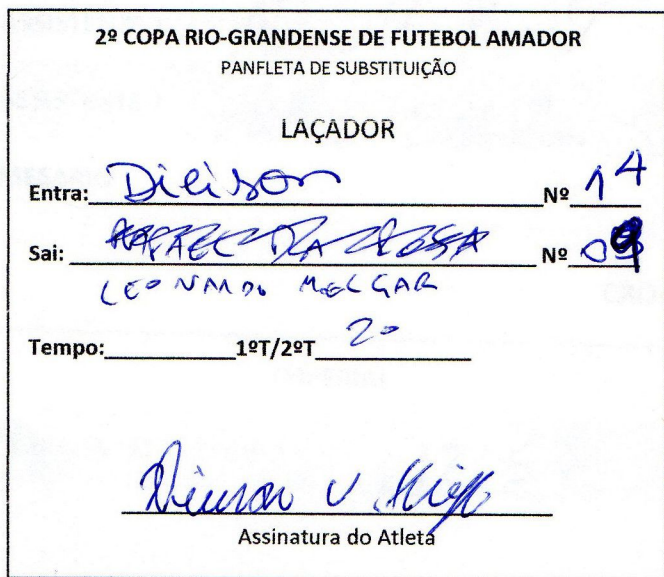 2º COPA RIO-GRANDENSE DE FUTEBOL AMADOR
PANFLETA DE SUBSTITUIÇÃO
LAÇADOR
Entra: Dieison Nº 14
Sai: RAFAEL DA ROSA Nº 09
LEONARDO MELGAR
Tempo:__________1ºT/2ºT 2º
Assinatura do Atleta